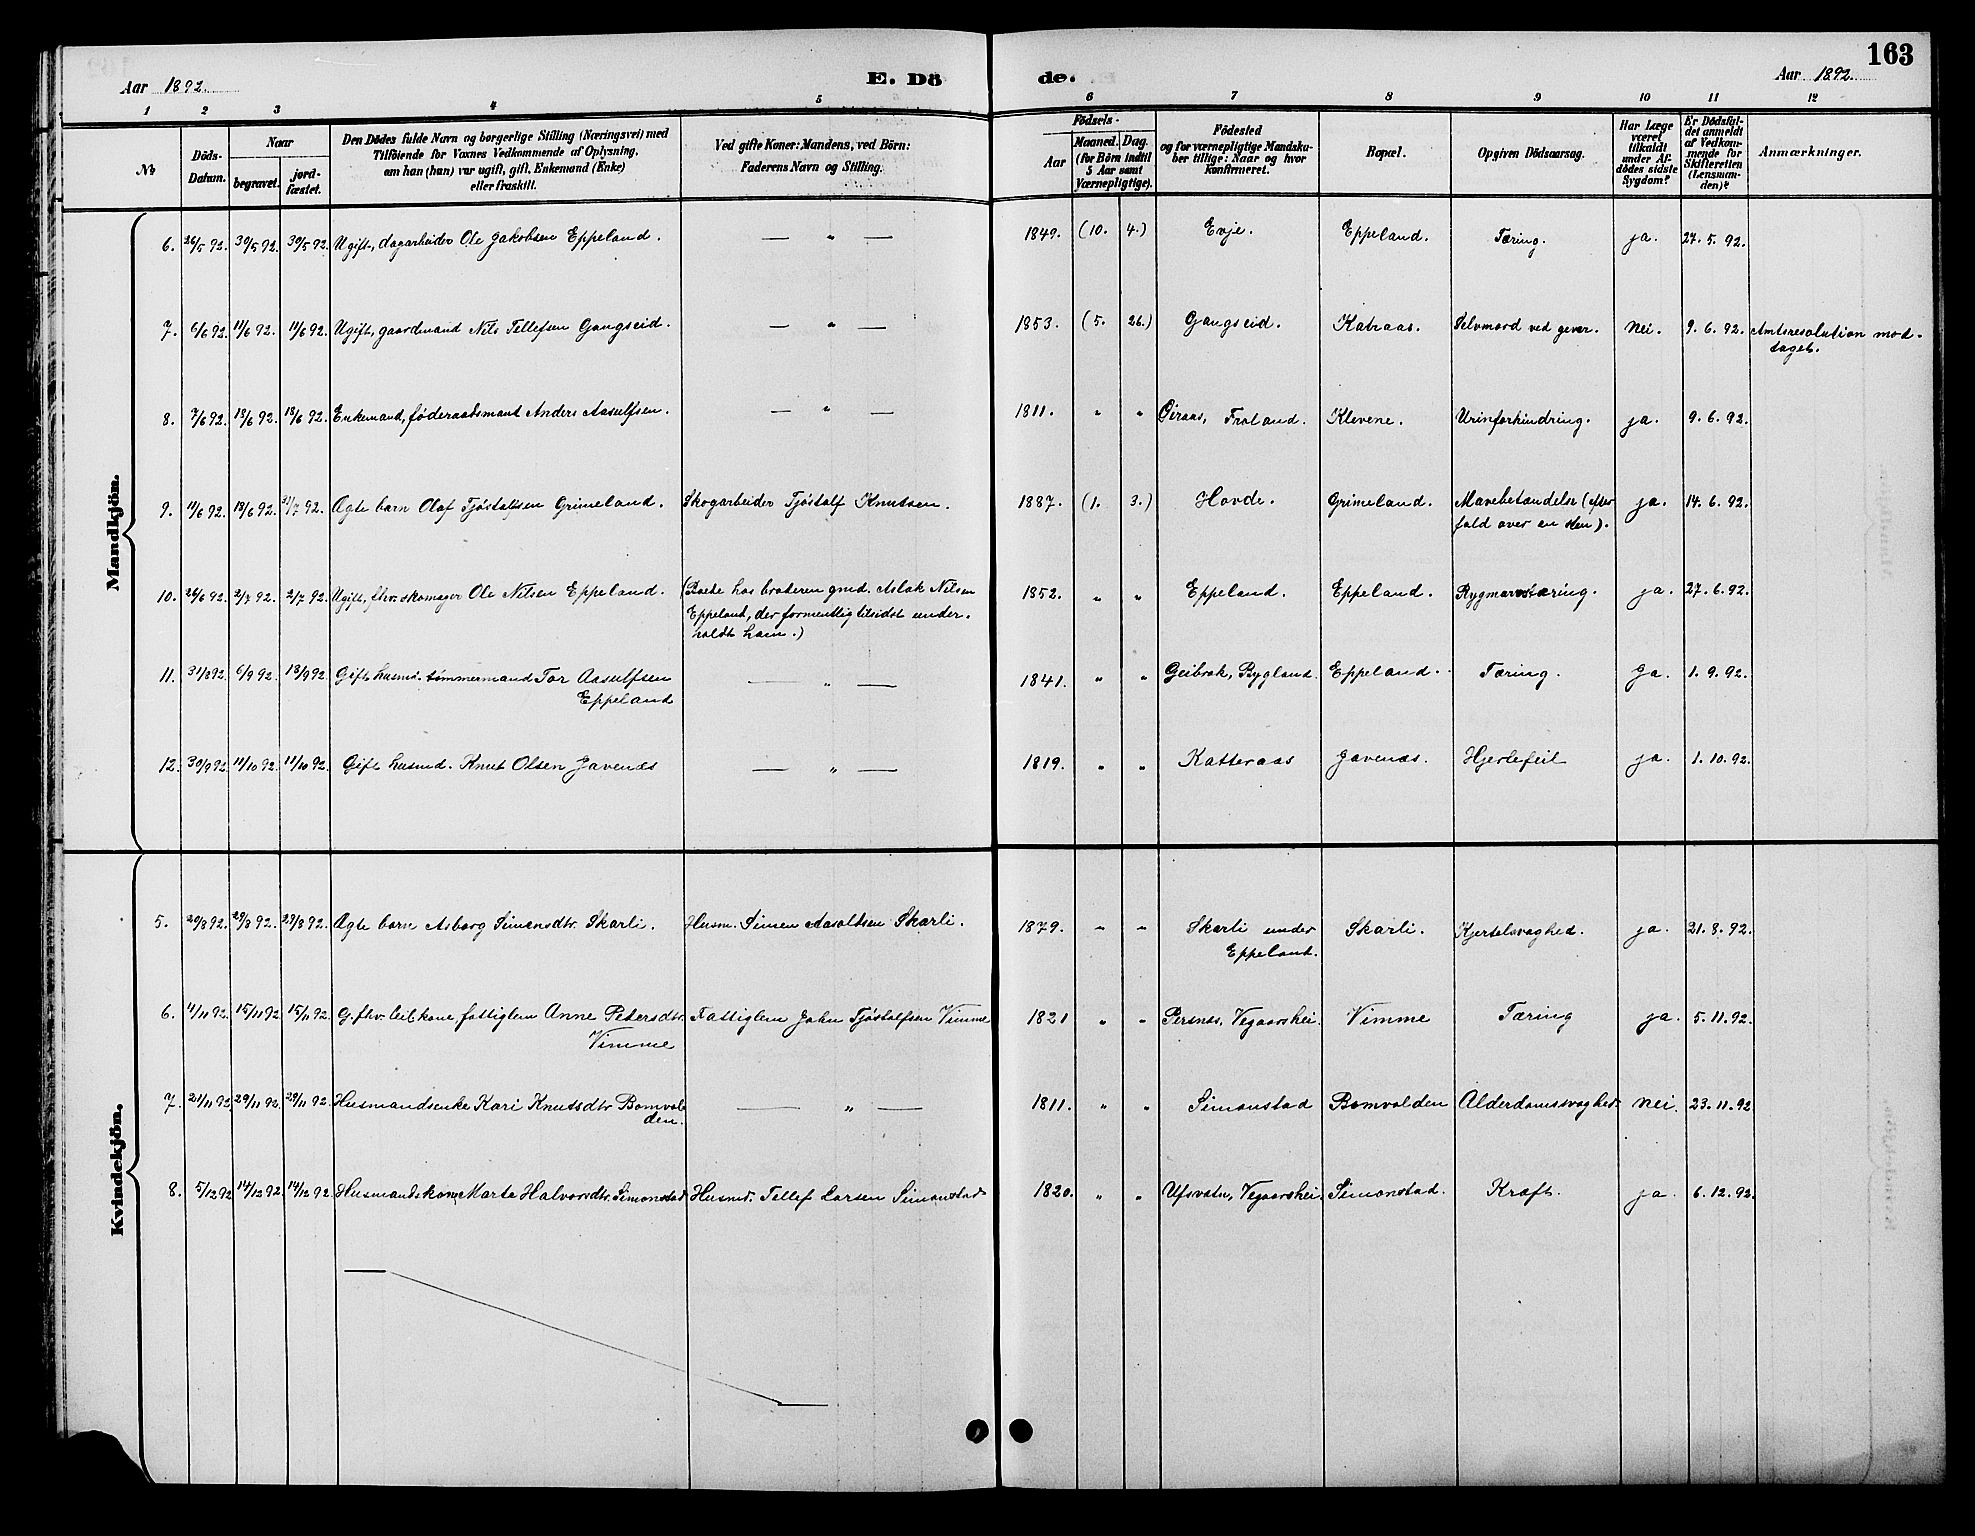 163
Aar 1892.
E. Dö
de.
Aar 1892.
1 2 3 4 5 6 7 8 9 10 11 12
No
Döds-
Datum.
Naar
begravet.
jord-
fæstet.
Den Dödes fulde Navn og borgerlige Stilling (Næringsvei) med
Tilföiende for Voxnes Vedkommende af Oplysning,
om han (hun) var ugift, gift, Enkemand (Enke)
eller fraskilt.
Ved gifte Koner: Mandens, ved Börn:
Faderens Navn og Stilling.
Födsels-
Aar
Maaned. Dag.
(for Börn indtil
5 Aar samt
Værnepligtige).
Födested
og for værnepligtige Mandska-
ber tillige: Naar og hvor
konfirmeret.
Bopæl.
Opgiven Dödsaarsag.
Har Læge
været
tilkaldt
under Af-
dödes sidste
Sygdom?
Er Dödsfal-
det anmeldt
af Vedkom-
mende for
Skifteretten
(Lensman-
den)?
Anmærkninger.
Mandkjön.
6. 26/5 92. 30/5 92. 30/5 92. Ugift, dagarbeider Ole Jakobsen Eppeland. — " — 1849. (10. 4.) Evje. Eppeland. Tæring. ja. 27. 5. 92.
7. 6/6 92. 11/6 92. 11/6 92. Ugift, gaardmand Nils Tellefsen Gangseid. — " — 1853. (5. 26.) Gangseid. Katraas. Selvmord ved gever. Nei. 9. 6. 92. Amtsresolution mod-
taget.
8. 7/6 92. 18/6 92. 18/6 92. Enkemand, føderaadsmand Anders Aasulfsen. — " — 1811. " " Øiraas, Froland. Klevene. Urinforhindring. ja. 9. 6. 92.
9. 11/6 92. 18/6 92. 31/7 92. Ægte barn Olaf Tjøstolfsen Grimeland. Skogarbeider Tjøstolf Knutsen. 1887. (1. 3.) Hovde. Grimeland. Mavebetændelse (efter
fald over en sten). ja. 14. 6. 92.
10. 26/6 92. 2/7 92. 2/7 92. Ugift, fhv. skomager Ole Nilsen Eppeland. (Boede hos broderen gmd. Aslak Nilsen
Eppeland, der formentlig tilsidst under-
holdt ham.) 1852. " " Eppeland. Eppeland. Rygmarvstæring. ja. 27. 6. 92.
11. 31/8 92. 6/9 92. 18/9 92. Gift husmd. tømmermand Tor Aasulfsen
Eppeland — " — 1841. " " Geibrok, Bygland. Eppeland. Tæring. Ja. 1. 9. 92.
12. 30/9 92. 11/10 92. 11/10 92. Gift husmd. Knut Olsen Javenæs — " — 1819. " " Katteraas Javenæs. Hjertefeil ja. 1. 10. 92.
Kvindekjön.
5. 20/8 92. 29/8 92. 29/8 92. Ægte barn Asborg Simonsdtr. Skarli. Husm. Simen Aasoltsen Skarli. 1879. " " Skarli under
Eppeland. Skarli. Kjertelsvaghed. ja. 21. 8. 92.
6. 4/11 92. 15/11 92 15/11 92. G. fhv. leil. kone fattiglem Anne Petersdtr.
Vimme Fattiglem John Tjøstolfsen Vimme 1821 " " Persnes, Vegaarshei. Vimme Tæring ja. 5. 11. 92.
7. 21/11 92. 29/11 92. 29/11 92. Husmandsenke Kari Knutsdtr. Bomvol-
den. — " — 1811. " " Simonstad Bomvolden Alderdomssvaghed. nei. 23. 11. 92
8. 5/12 92 14/12 92. 14/12 92. Husmandskone Marte Halvorsdtr. Simonstad Husmd. Tellef Larsen Simonstad 1820. " " Ufsvatn, Vegaarshei. Simonstad. Kræft. ja. 6. 12. 92.